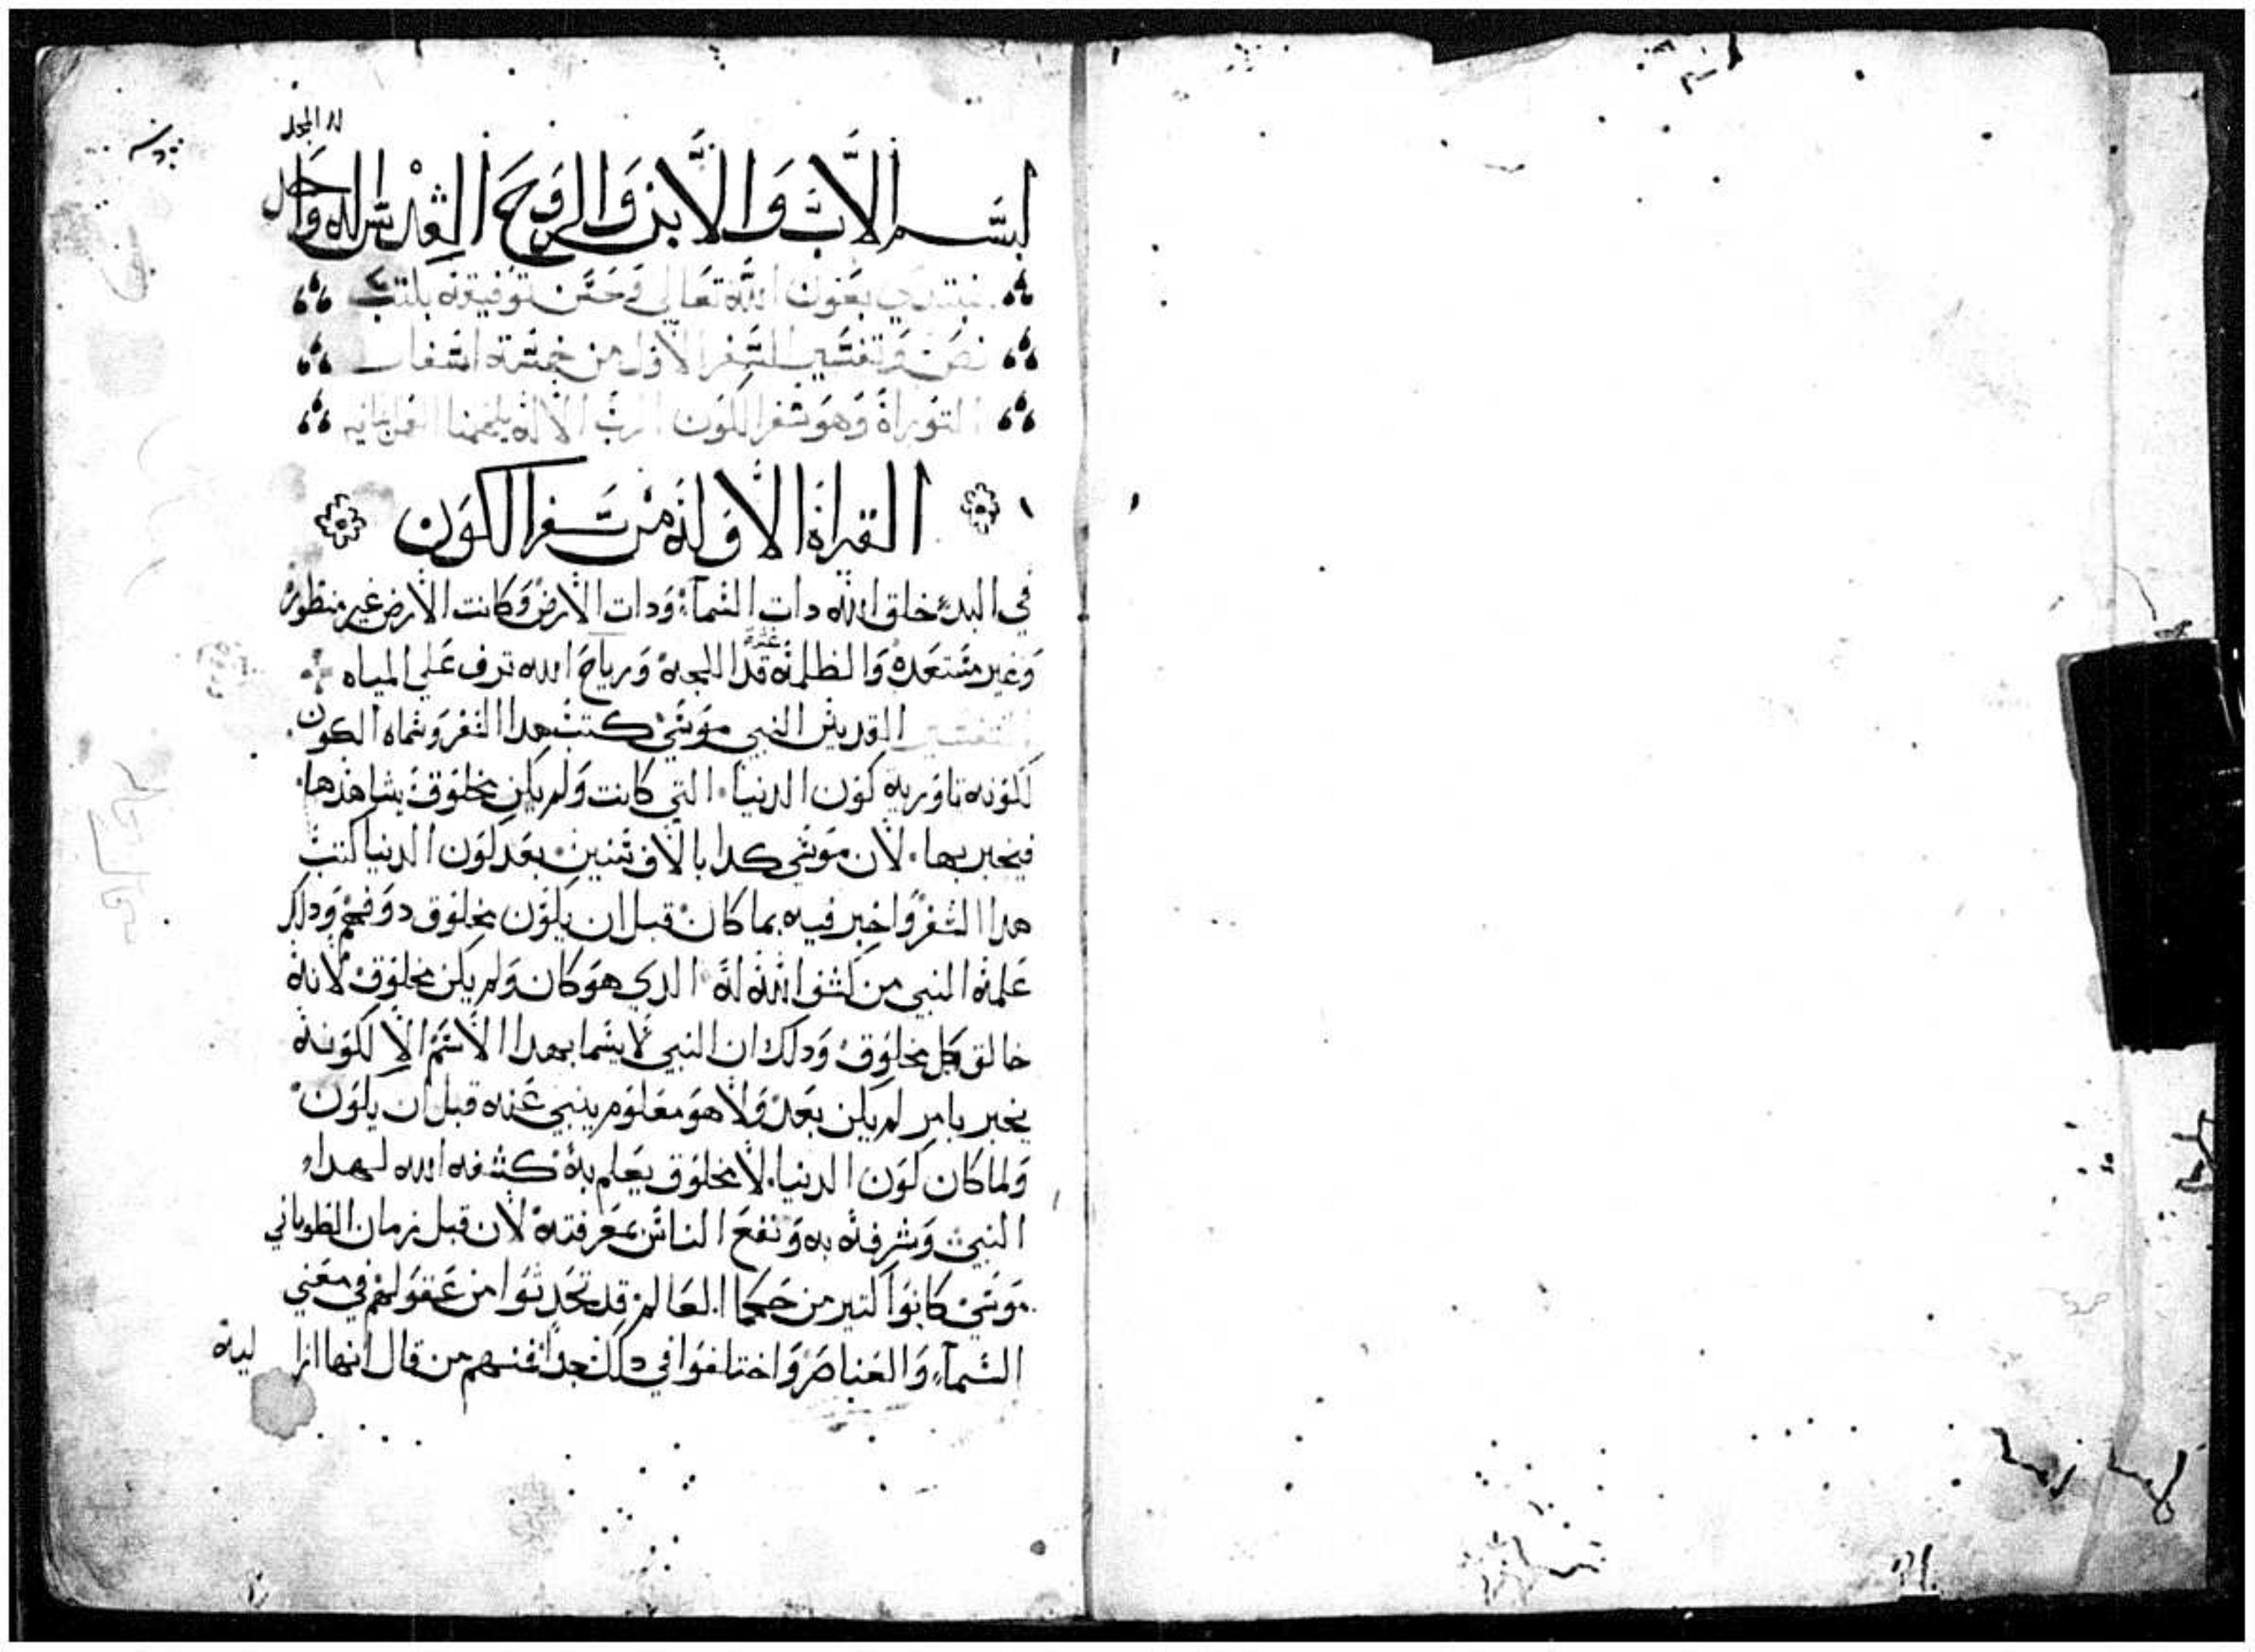 له المجد
بسم الاب والابن والروح القدس اله واحد
نبتدي بعون الله تعالي وحسن توفيقه بكتب
نص وتفسير السفر الاول من خمسة اسفار
التوراة وهو سفر الكون الرب الاله
القراة الاوله من سفر الكون
في البدء خلق الله دات السماء ودات الارض وكانت الارض غير منظوره
وغير مستعده والظلمة غشت قدا اللجة ورياح الله ترف علي المياه
التفسير القديس النبي موسي كتب هدا السفر وسماه الكون
لكونه تاوريه كون الدنيا التي كانت ولم يكن مخلوق يشاهدها
فيخبر بها لان موسي كدا بالاف سنين بعد كون الدنيا كتب
هدا السفر واخبر فيه بما كان قبل ان يكون مخلوق دو فهم ودلك
علمه النبي من كشف الله له الدي هو كان ولم يكن مخلوق لانه
خالق كل مخلوق ودلك ان النبي لا يسما بهدا الاسم الا لكونه
يخبر بامر لم يكن بعد ولا هو معلوم ينبي عنه قبل ان يكون
ولما كان كون الدنيا لا مخلوق يعلم به كشفه الله لهدا
النبي وشرفه به ونفع الناس بمعرفته لان قبل زمان الطوباني
موسي كانوا كتير من حكما العالم قد تحدثوا من عقولهم في معني
السماء والعناصر واختلفوا في دلك جدا فمنهم من قال انها ازا
ليه